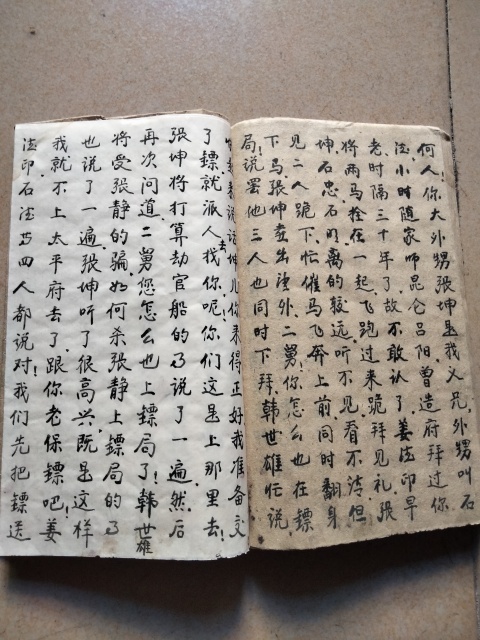 何人！你大外甥張坤是我义兄，外甥叫石
法，小时随家师昆仑吕阳，曾造府拜过你
老，时隔三十年了故不敢认了，姜法印早
将两马拴在一起，飞跑过来跪拜见礼，張
坤石忠石明离的較远，听不見看不清，但
見二人跪下忙催马飞奔上前同时翻身
下马，張坤喜出望外二舅！你怎么也在鏢
局！说罢他三人也同时下拜，韩世雄忙说，
坤儿你来得正好我准备交
了鏢就派人去找你呢！你们这是上那里去！
張坤将打算劫官船的事说了一遍，然后
再次问道，二舅您怎么也上鏢局了！韩世雄
将受張静的骗，如何杀張静上鏢局的事
也说了一遍，張坤听了很高兴，既是这样
我就不上太平府去了，跟你老保鏢吧！姜
法印石法等四人都说对！我们先把鏢送